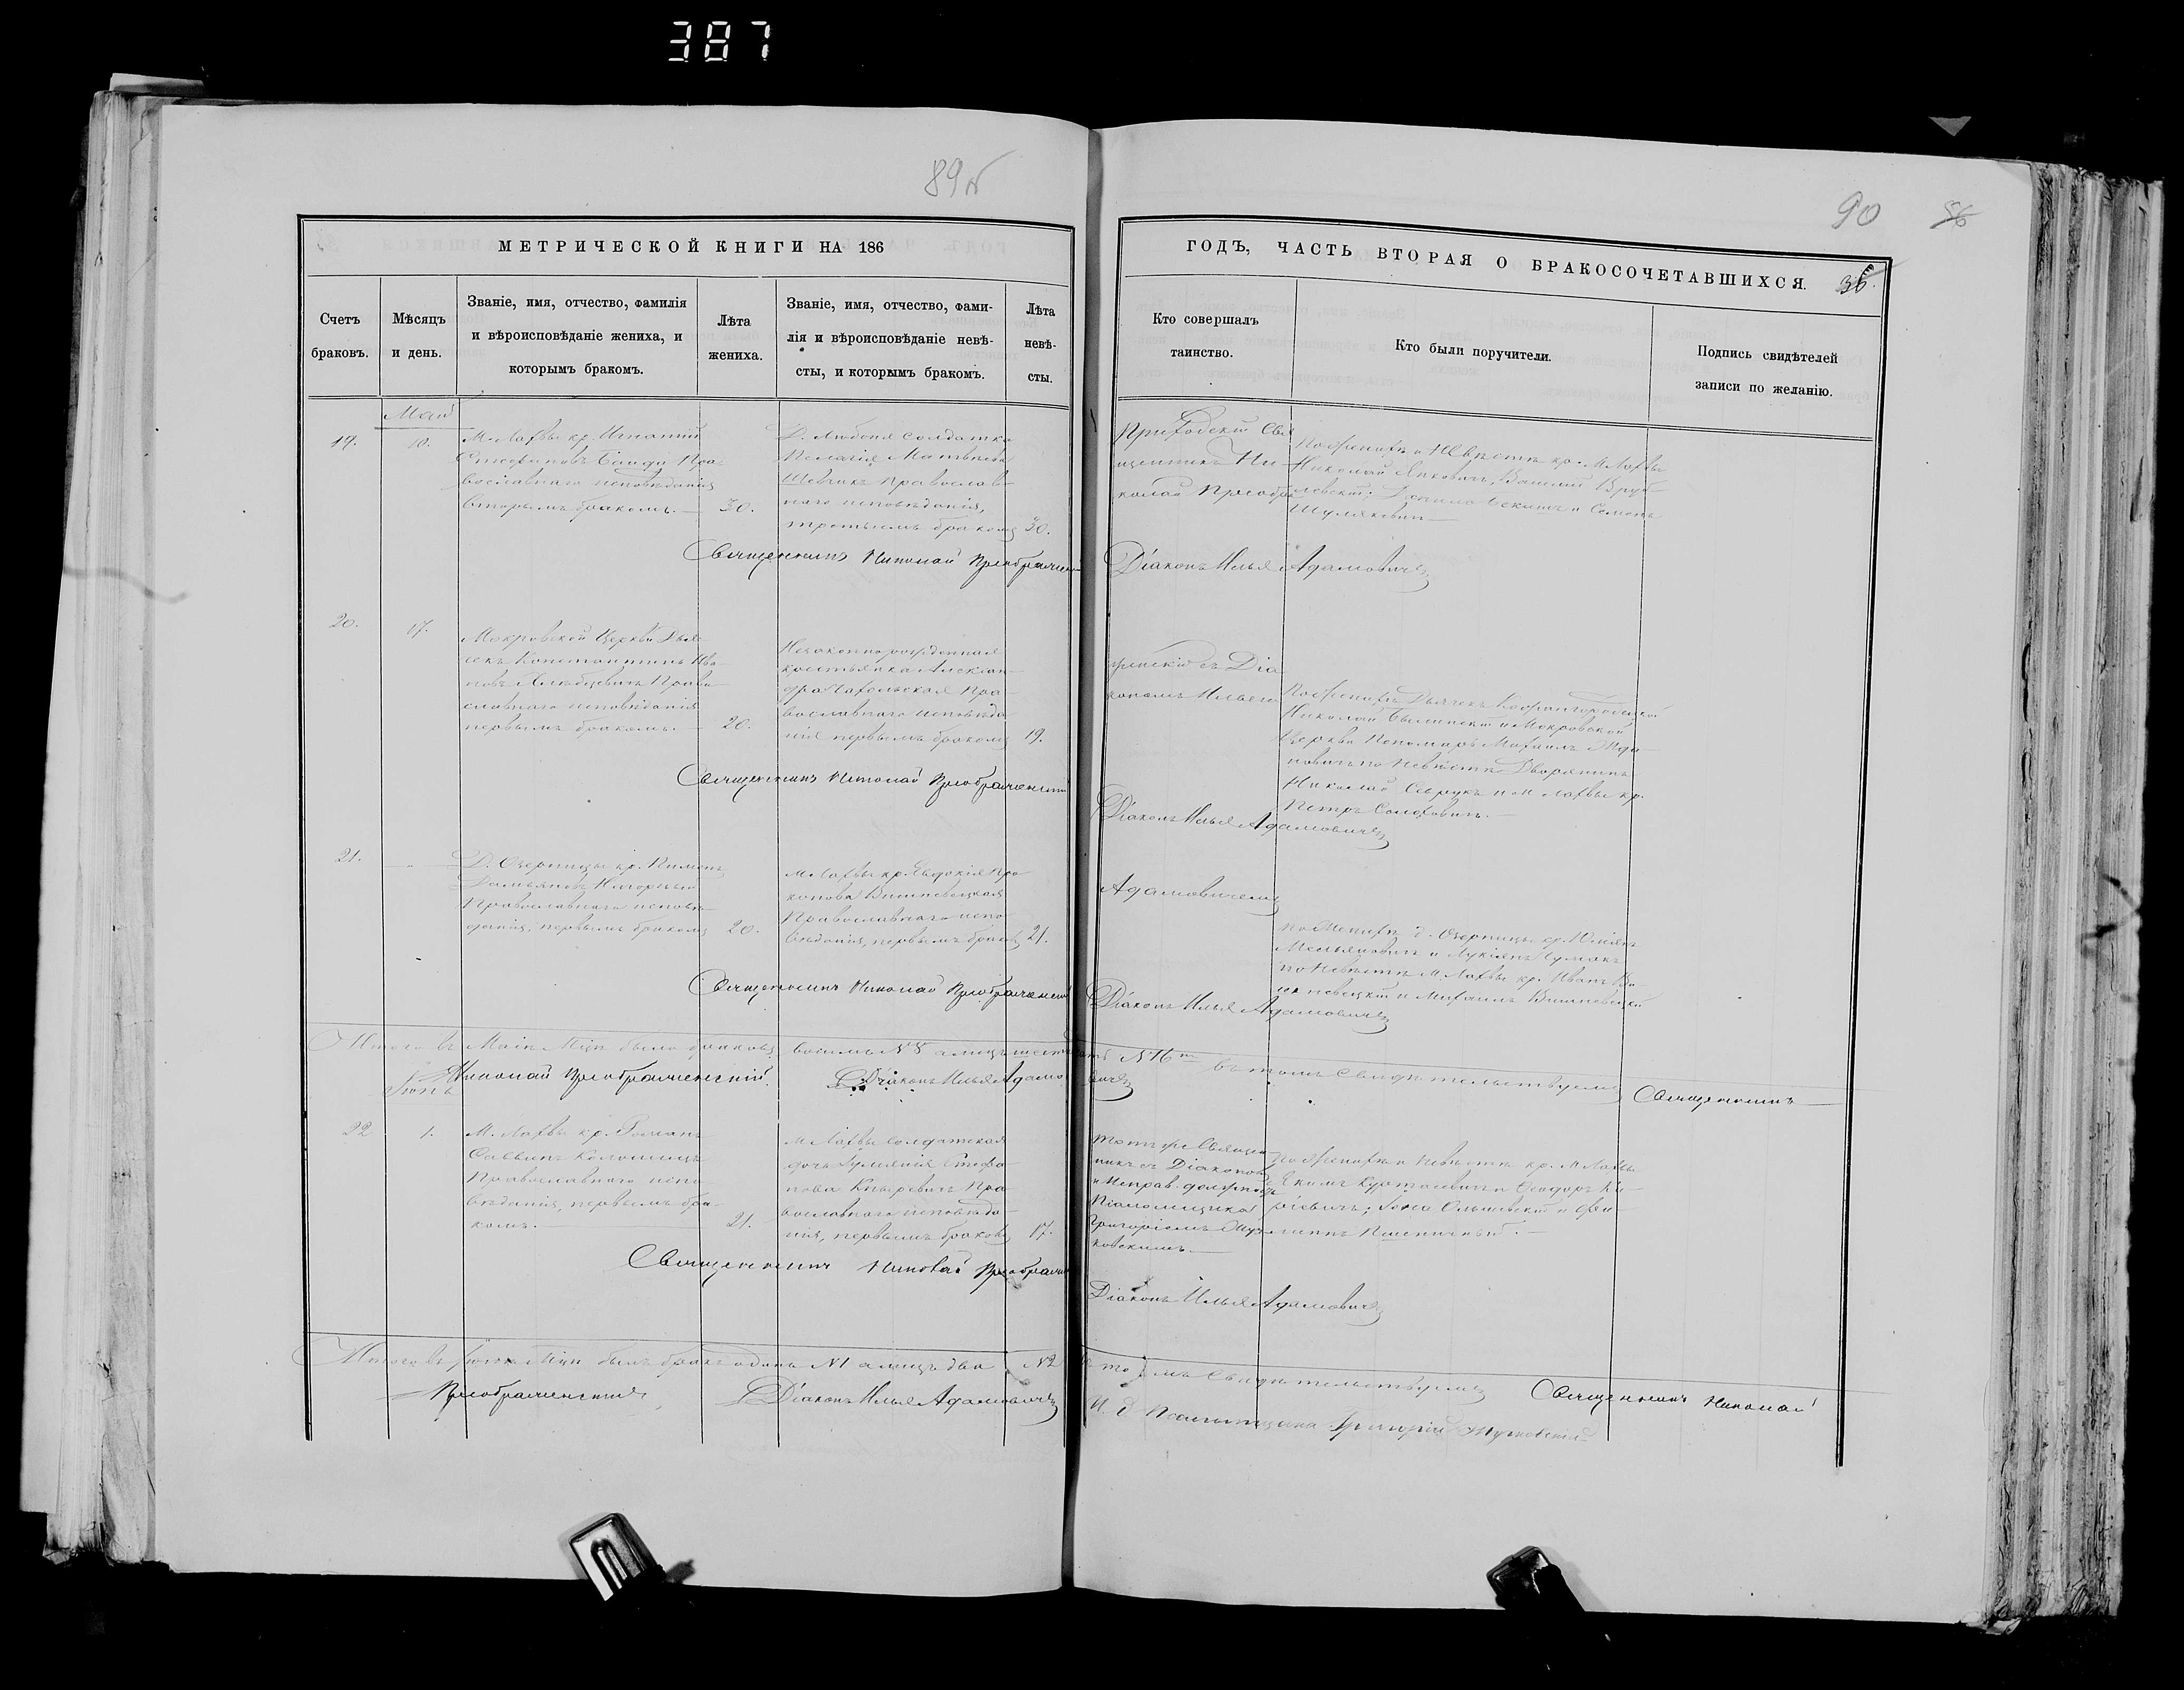 387
89 об
90
56
МЕТРИЧЕСКОЙ КНИГИ НА 186
ГОДЪ, ЧАСТЬ ВТОРАЯ О БРАКОСОЧЕТАВШИХСЯ.
36.
Счетъ
браковъ.
Мѣсяцъ
и день.
Званіе, имя, отчество, фамилія
и вѣроисповѣданіе жениха, и
которымъ бракомъ.
Лѣта
жениха.
Званіе, имя, отчество, фами-
лія и вѣроисповѣданіе невѣ-
сты, и которымъ бракомъ.
Лѣта
невѣ-
сты.
Кто совершалъ
таинство.
Кто были поручители.
Подпись свидѣтелей
записи по желанію.
Май
19.
10.
М. Лахвы кр. Игнатій
Стефановъ Пра-
вославнаго исповѣданія
вторымъ бракомъ.
30.
Д. Любоня солдатка
Пелагія Матвѣева
Шевчикъ православ-
наго исповѣданія,
третьимъ бракомъ
30.
Приходскій Свя
щенникъ Ни-
колай Преобра
По Женихѣ и Невѣстѣ кр. М. Лахвы
Николай Янковичъ, Василій Вруб-
левскій, Данило и Семенъ
Шулякевич
Священникъ Николай Преображенс
Діаконъ Илья Адамовичъ
20.
17.
Мокровской Церкви Дья-
чекъ Константинъ Ива-
новъ Право
славнаго исповѣданія
первымъ бракомъ.
20.
Незаконнорожденная
крестьянка Алексан-
дра Пра-
вославнаго исповѣда
нія первымъ бракомъ
19.
женскій съ Діа
кономъ Ильею
По Женихѣ Дьячекъ Кожангородецкой
Николай и Мокровской
Церкви Пономарь Михаилъ Жда-
новичъ по Невѣстѣ Дворянинъ
Николай и М. Лахвы кр.
Петръ
Священникъ Николай Преображенскій
Діаконъ Илья Адамовичъ
21.
"
Д. Озерницы кр. Пименъ
Демьяновъ
Православнаго исповѣ-
данія, первымъ бракомъ
20.
М. Лахвы кр. Евдокія Про
копова Вишневецкая
Православнаго испо
вѣданія, первымъ браком
21.
Адамовичемъ
по Женихѣ д. Озерницы кр. Юліянъ
Мельяновичъ и Лукіянъ Чумакъ
по Невѣстѣ М. Лахвы кр. Иванъ Ви-
шневецкій и Михаилъ Вишневецкій
Священникъ Николай Преображенскій
Діаконъ Илья Адамовичъ
Итого въ Маіѣ Мцѣ было браковъ восемь №8 а лицъ шестнадцать №16 въ томъ Свидѣтельствуемъ Священникъ
Николай Преображенскій.
Діаконъ Илья Адамовичъ
Іюнь
22
1.
М. Лахвы кр. Романъ
Саввинъ
Православнаго испо
вѣданія, первымъ бра-
комъ.
21.
М. Лахвы солдатская
дочь Стефа-
нова Пра-
вославнаго исповѣда-
нія, первымъ браком
17.
тотъ же Священ
никъ съ Діакономъ
и исправ. должность
Псаломщика
Григоріемъ Жу-
ковскимъ.
по Женихѣ и Невѣстѣ кр. М. Лахвы
и Ѳеодоръ Ки-
ріевичъ; Ольшевскій и Фи-
липпъ Пшеничный.
Священникъ Николай Преображ
Діаконъ Илья Адамовичъ
Итого въ Іюнѣ Мцѣ былъ бракъ одинъ №1 а лицъ два №2 въ томъ Свидѣтельствуемъ Священникъ Николай
Преображенскій
Діаконъ Илья Адамовичъ
И. д Псаломщика Григорій Жуковскій